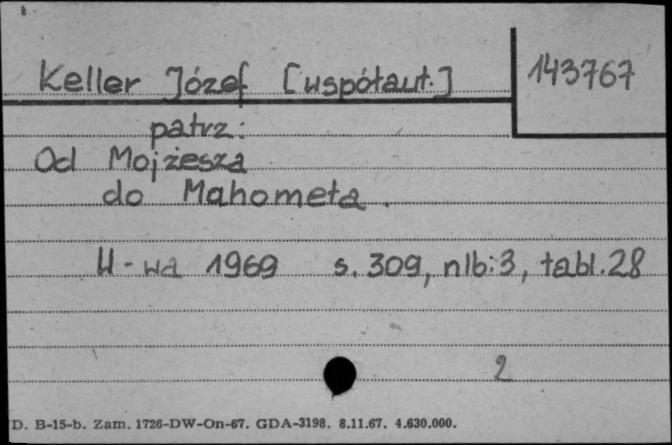 Keller Józef [współaut.] 143767
patrz:
Od Mojżesza
do Mahometa.
W-wa 1969 s. 309, nlb: 3, tabl. 28
2
D. B-15-b. Zam. 1726-DW-On-67. GDA-3198. 8.11.67. 4.630.000.